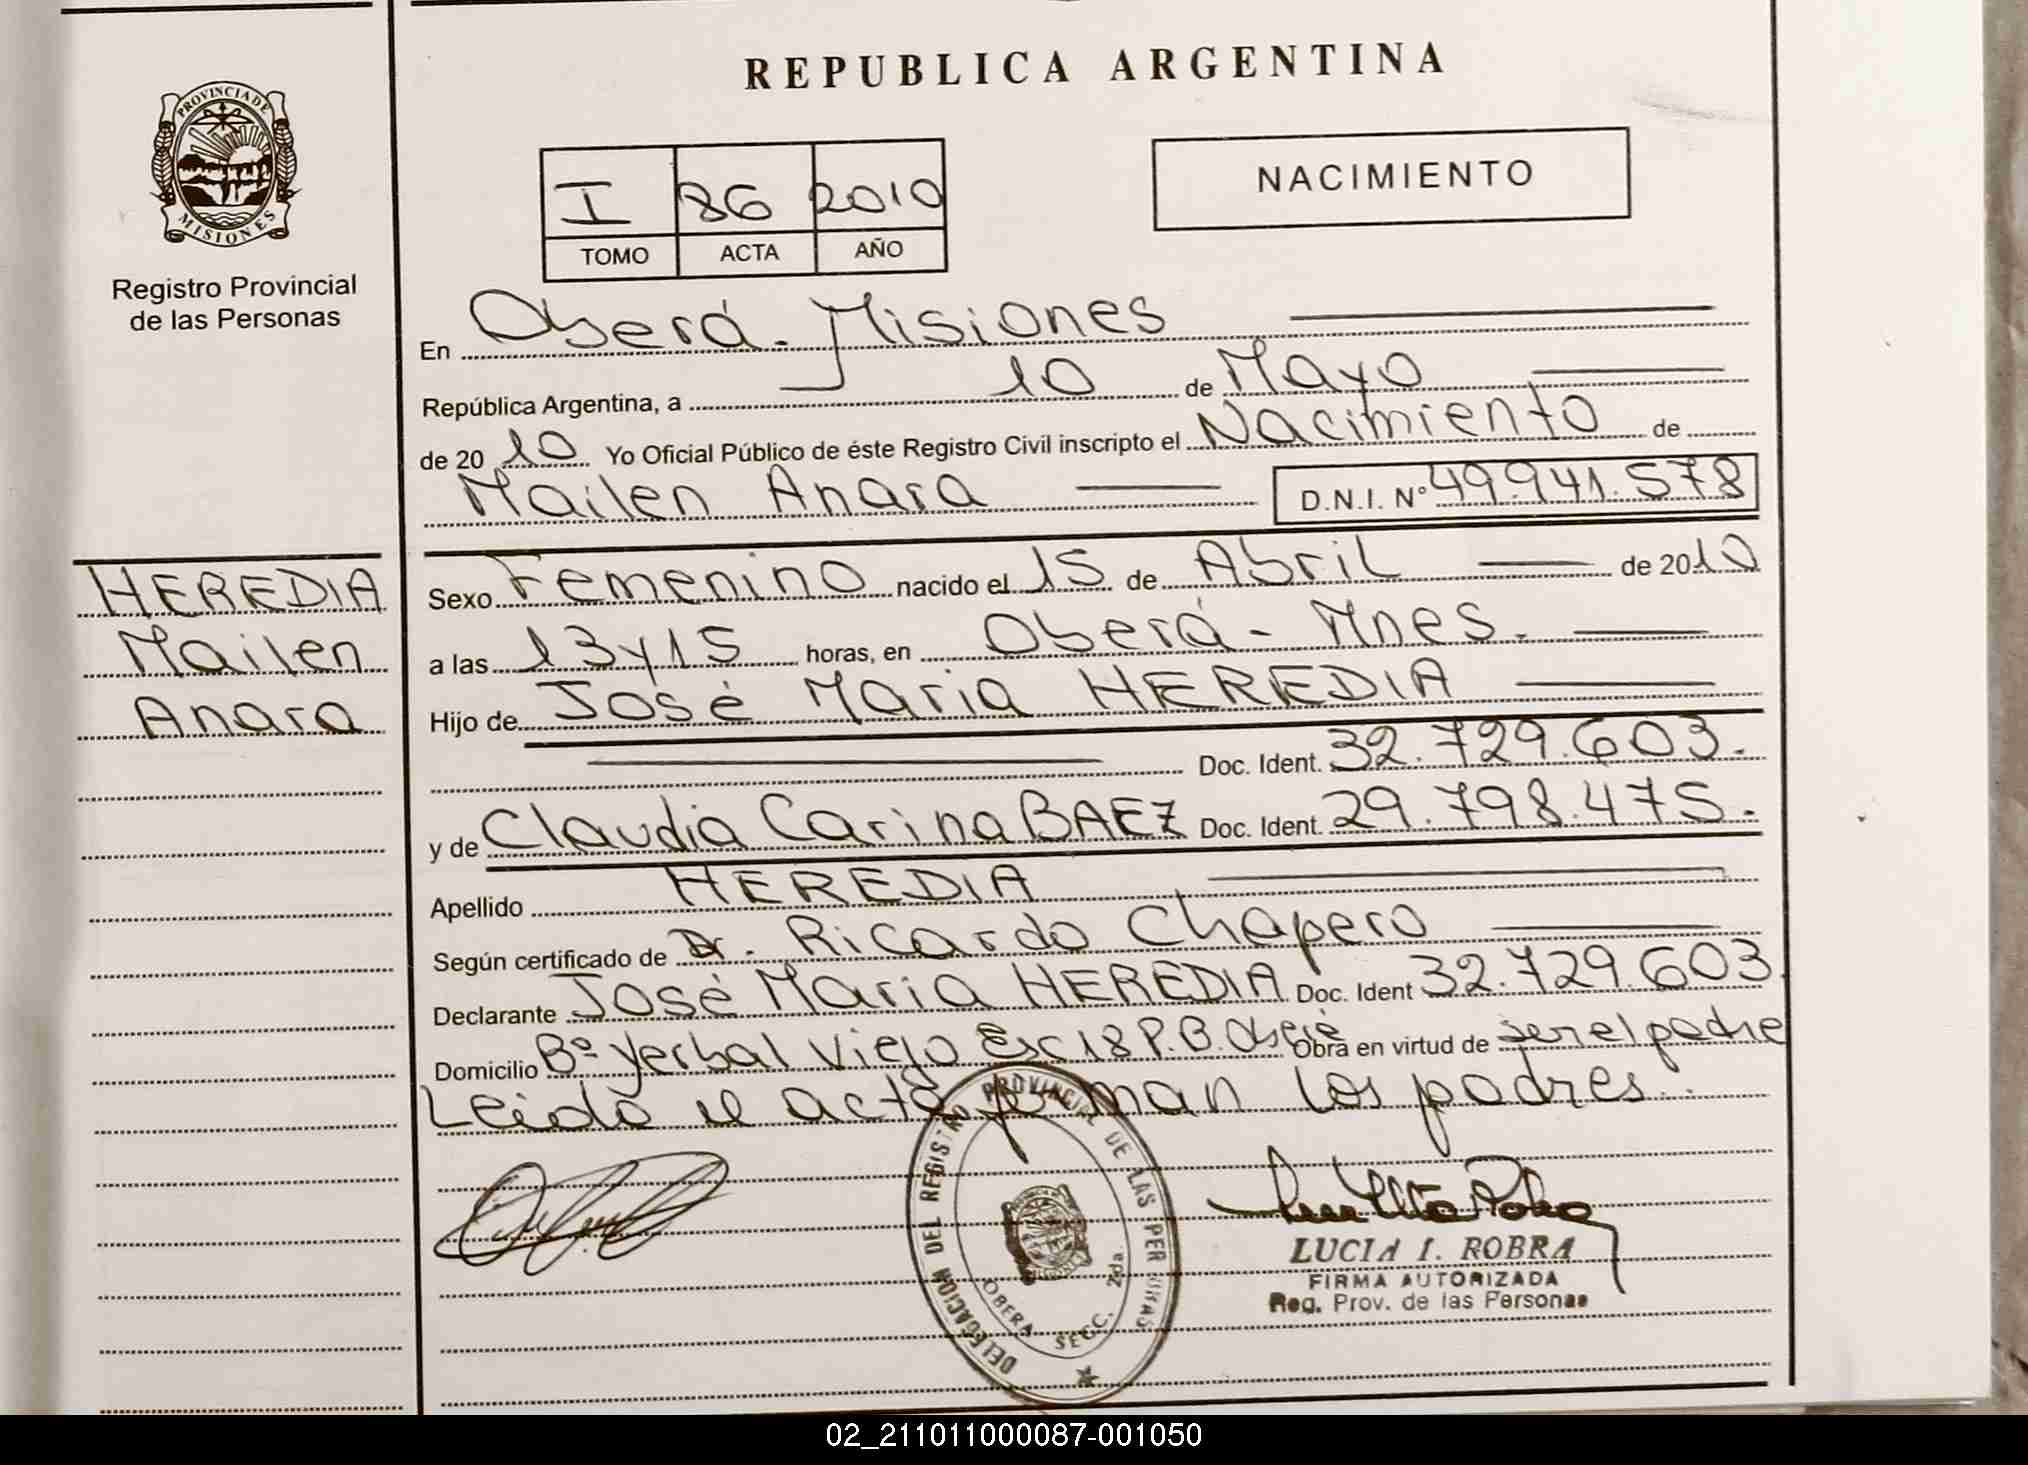 REPUBLICA ARGENTINA
PROVINCIA DE
MISIONES
Registro Provincial
de las Personas
I 86 2010
TOMO ACTA AÑO
NACIMIENTO
En Oberá - Misiones
República Argentina, a 10 de Mayo
de 20 10 Yo Oficial Público de éste Registro Civil inscripto el Nacimiento de
Mailen Anara D.N.I. Nº 49.941.578
HEREDIA
Mailen
Anara
Sexo Femenino nacido el 15 de Abril de 2010
a las 13 y 15 horas, en Oberá - Mnes.
Hijo de José Maria HEREDIA
Doc. Ident. 32.729.603.
y de Claudia Carina BAEZ Doc. Ident. 29.798.475.
Apellido HEREDIA
Según certificado de Dr. Ricardo Chapero
Declarante José Maria HEREDIA Doc. Ident 32.729.603
Domicilio Bº Yerbal Viejo Esc 18 P.B. Oberá Obra en virtud de ser el padre
Leido el acta firman los padres.
DELEGACION DEL REGISTRO PROVINCIAL DE LAS PERSONAS
OBERA SECC. 2da.
LUCIA I. ROBRA
FIRMA AUTORIZADA
Reg. Prov. de las Personas
02_211011000087-001050